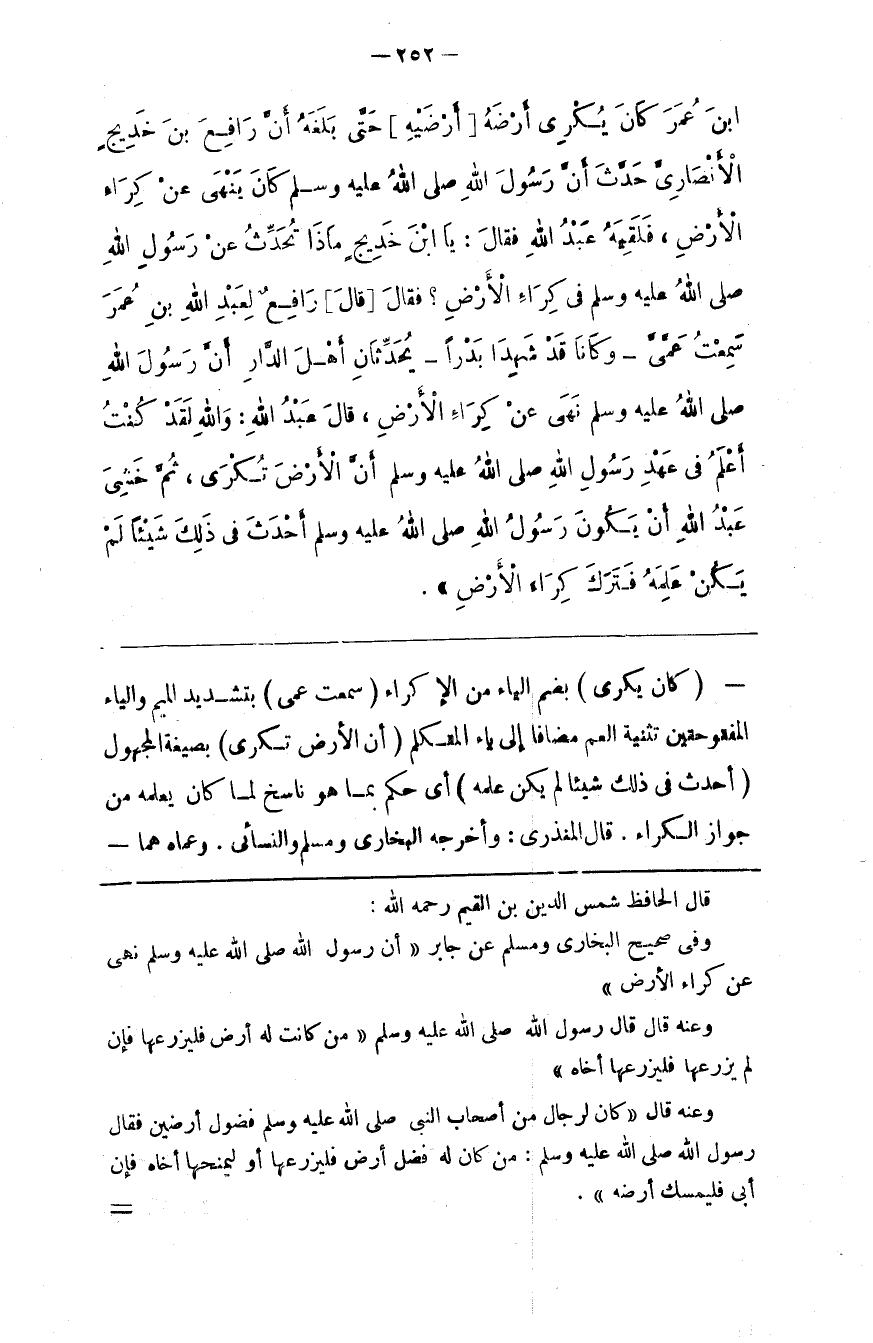 — ٢٥٢ —
ابنَ عُمَرَ كَانَ يُكْرِى أَرْضَهُ [ أَرْضَيْهِ ] حَتَّى بَلَغَهُ أَنَّ رَافِعَ بنَ خَدِيجٍ
الْأَنْصَارِىَّ حَدَّثَ أَنَّ رَسُولَ اللهِ صلى اللهُ عليه وسلم كَانَ يَنْهَى عنْ كِرَاءِ
الْأَرْضِ ، فَلَقِيَهُ عَبْدُ اللهِ فقالَ : يا ابْنَ خَدِيجٍ ماذَا تُحَدِّثُ عنْ رَسُولِ اللهِ
صلى اللهُ عليه وسلم فى كِرَاءِ الْأَرْضِ ؟ فقالَ [قالَ] رَافِعٌ لِعَبْدِ اللهِ بنِ عُمَرَ
سَمِعْتُ عَمَّىَّ – وكَانَا قَدْ شَهِدَا بَدْراً – يُحَدِّثَانِ أَهْلَ الدَّارِ أَنَّ رَسُولَ اللهِ
صلى اللهُ عليه وسلم نَهَى عنْ كِرَاءِ الْأَرْضِ ، قالَ عَبْدُ اللهِ : وَاللهِ لَقَدْ كُنْتُ
أَعْلَمُ فى عَهْدِ رَسُولِ اللهِ صلى اللهُ عليه وسلم أَنَّ الْأَرْضَ تُكْرَى ، ثُمَّ خَشِىَ
عَبْدُ اللهِ أَنْ يَكُونَ رَسُولُ اللهِ صلى اللهُ عليه وسلم أَحْدَثَ فى ذَلِكَ شَيْئاً لَمْ
يَكُنْ عَلِمَهُ فَتَرَكَ كِرَاءَ الْأَرْضِ » .
— ( كان يكرى ) بضم الياء من الإكراء ( سمعت عمى ) بتشديد الميم والياء
المفتوحتين تثنية العم مضافا إلى ياء المتكلم ( أن الأرض تكرى ) بصيغة المجهول
( أحدث فى ذلك شيئا لم يكن علمه ) أى حكم بما هو ناسخ لما كان يعلمه من
جواز الكراء . قال المنذرى : وأخرجه البخارى ومسلم والنسائى . وعماه هما —
قال الحافظ شمس الدين بن القيم رحمه الله :
وفى صحيح البخارى ومسلم عن جابر « أن رسول الله صلى الله عليه وسلم نهى
عن كراء الأرض »
وعنه قال قال رسول الله صلى الله عليه وسلم « من كانت له أرض فليزرعها فإن
لم يزرعها فليزرعها أخاه »
وعنه قال « كان لرجال من أصحاب النبى صلى الله عليه وسلم فضول أرضين فقال
رسول الله صلى الله عليه وسلم : من كان له فضل أرض فليزرعها أو ليمنحها أخاه فإن
أبى فليمسك أرضه » .
=